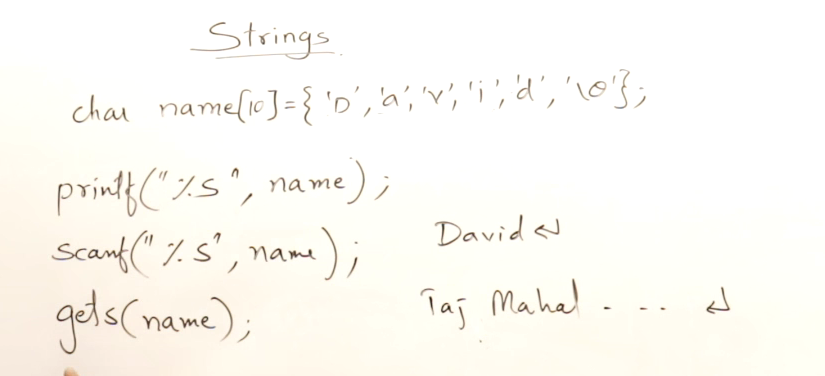 Strings
char name[10]={'D','a','v','i','d','\0'};
printf("%s", name);
scanf("%s", name);
David ↵
gets(name);
Taj Mahal - - - ↵